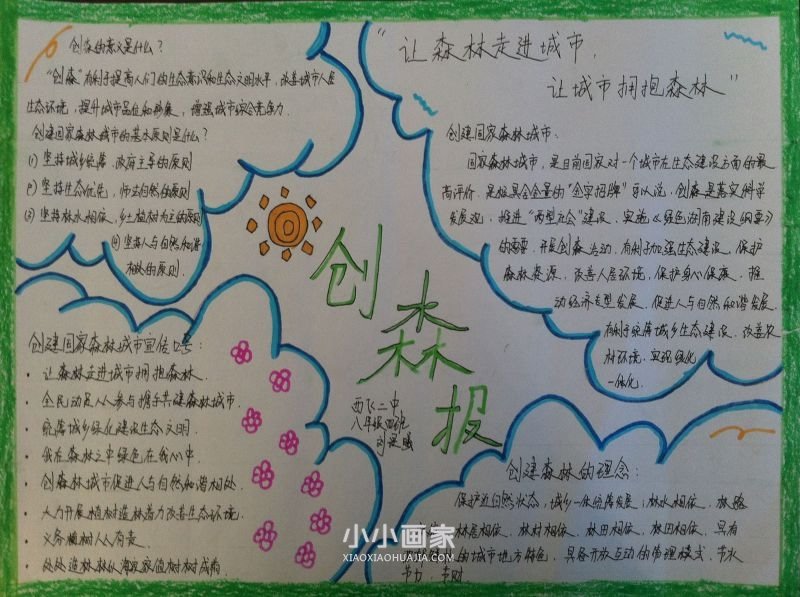 创森的意义是什么？
"创森"有利于提高人们的生态意识和生态文明水平，改善城市人居
生态环境，提升城市品位和形象，增强城市综合竞争力．
创建国家森林城市的基本原则是什么？
(1) 坚持城乡统筹，政府主导的原则
(2) 坚持生态优先，师法自然的原则
(3) 坚持林水相依，乡土植树为主的原则
(4) 坚持人与自然和谐
相处的原则．
"让森林走进城市，
让城市拥抱森林"
创建国家森林城市：
国家森林城市，是目前国家对一个城市在生态建设方面的最
高评价，是极具含金量的"金字招牌"可以说，创森是落实科学
发展观，推进"两型社会"建设，实施《绿色湖南建设纲要》
的需要，开展创森活动，有利于加强生态建设，保护
森林资源，改善人居环境，保护身心健康，推
动经济转型发展，促进人与自然和谐发展．
有利于统筹城乡生态建设，改善农
村环境，实现绿化
一体化．
创森报
西飞二中
八年级四班
创建国家森林城市宣传口号：
· 让森林走进城市拥抱森林．
· 全民动员人人参与携手共建森林城市．
· 统筹城乡绿化建设生态文明．
· 我在森林之中绿色在我心中．
· 创森林城市促进人与自然和谐相处．
· 大力开展植树造林着力改善生态环境．
· 义务植树人人有责．
· 处处造林林似海家家植树树成荫．
创建森林的理念：
保护近自然状态，城乡一体统筹发展，林水相依，林路
林居相依，林村相依，林田相依，林田相依，具有
的城市地方特色，具备开放互动的管理模式，节水
节力，节财
小小画家
XIAOXIAOHUAJIA.COM